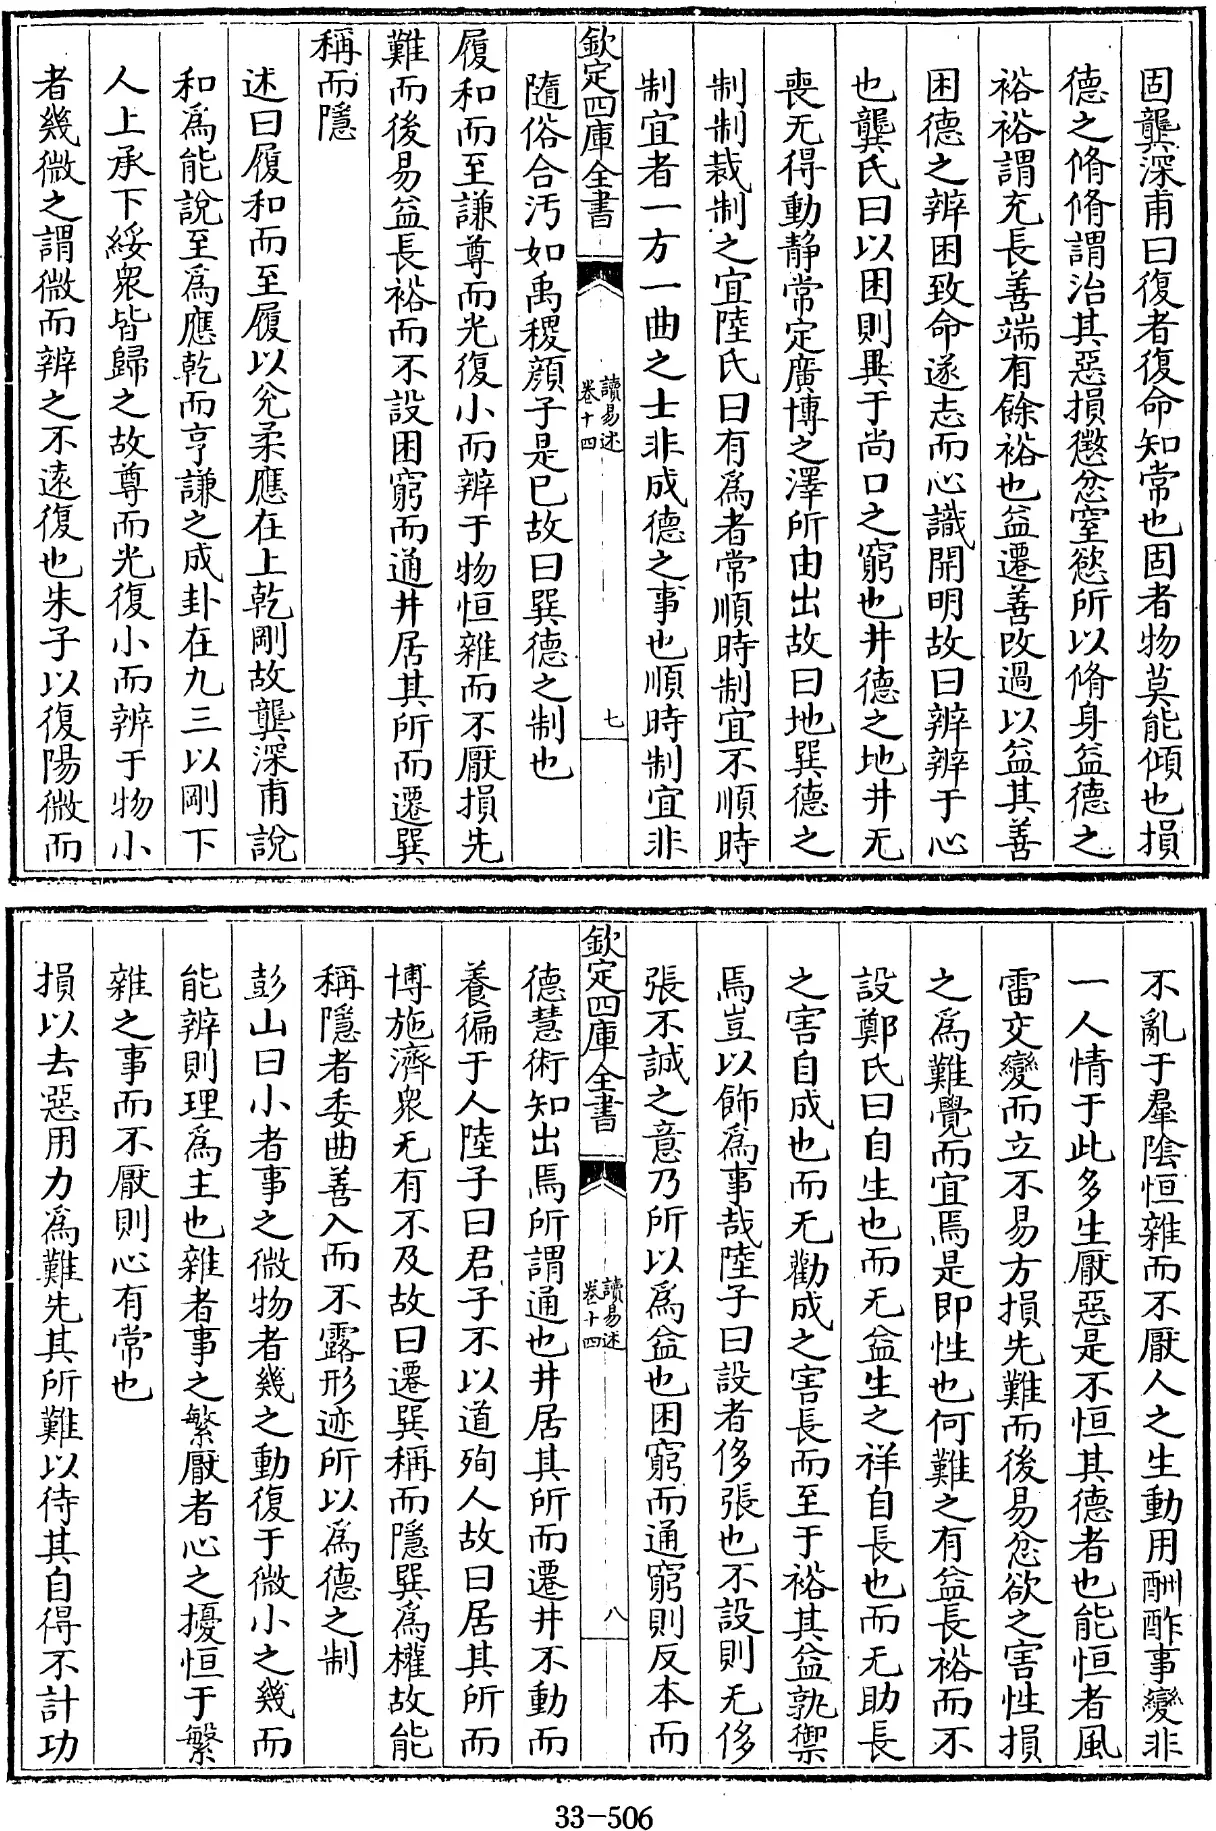 固龔深甫曰復者復命知常也固者物莫能傾也損
德之脩脩謂治其惡損懲忿窒慾所以脩身益德之
裕裕謂充長善端有餘裕也益遷善改過以益其善
困德之辨困致命遂志而心識開明故曰辨辨于心
也龔氏曰以困則異于尚口之窮也井德之地井无
喪无得動靜常定廣博之澤所由出故曰地巽德之
制制裁制之宜陸氏曰有爲者常順時制宜不順時
制宜者一方一曲之士非成德之事也順時制宜非
欽定四庫全書
讀易述
卷十四
七
隨俗合汚如禹稷顏子是已故曰巽德之制也
履和而至謙尊而光復小而辨于物恒雜而不厭損先
難而後易益長裕而不設困窮而通井居其所而遷巽
稱而隱
述曰履和而至履以兊柔應在上乾剛故龔深甫說
和爲能說至爲應乾而亨謙之成卦在九三以剛下
人上承下綏衆皆歸之故尊而光復小而辨于物小
者幾微之謂微而辨之不遠復也朱子以復陽微而
不亂于羣陰恒雜而不厭人之生動用酬酢事變非
一人情于此多生厭惡是不恒其德者也能恒者風
雷交變而立不易方損先難而後易忿欲之害性損
之爲難覺而宜焉是即性也何難之有益長裕而不
設鄭氏曰自生也而无益生之祥自長也而无助長
之害自成也而无勸成之害長而至于裕其益孰禦
焉豈以飾爲事哉陸子曰設者侈張也不設則无侈
張不誠之意乃所以爲益也困窮而通窮則反本而
欽定四庫全書
讀易述
卷十四
八
德慧術知出焉所謂通也井居其所而遷井不動而
養徧于人陸子曰君子不以道殉人故曰居其所而
博施濟衆无有不及故曰遷巽稱而隱巽爲權故能
稱隱者委曲善入而不露形迹所以爲德之制
彭山曰小者事之微物者幾之動復于微小之幾而
能辨則理爲主也雜者事之繁厭者心之擾恒于繁
雜之事而不厭則心有常也
損以去惡用力爲難先其所難以待其自得不計功
33-506